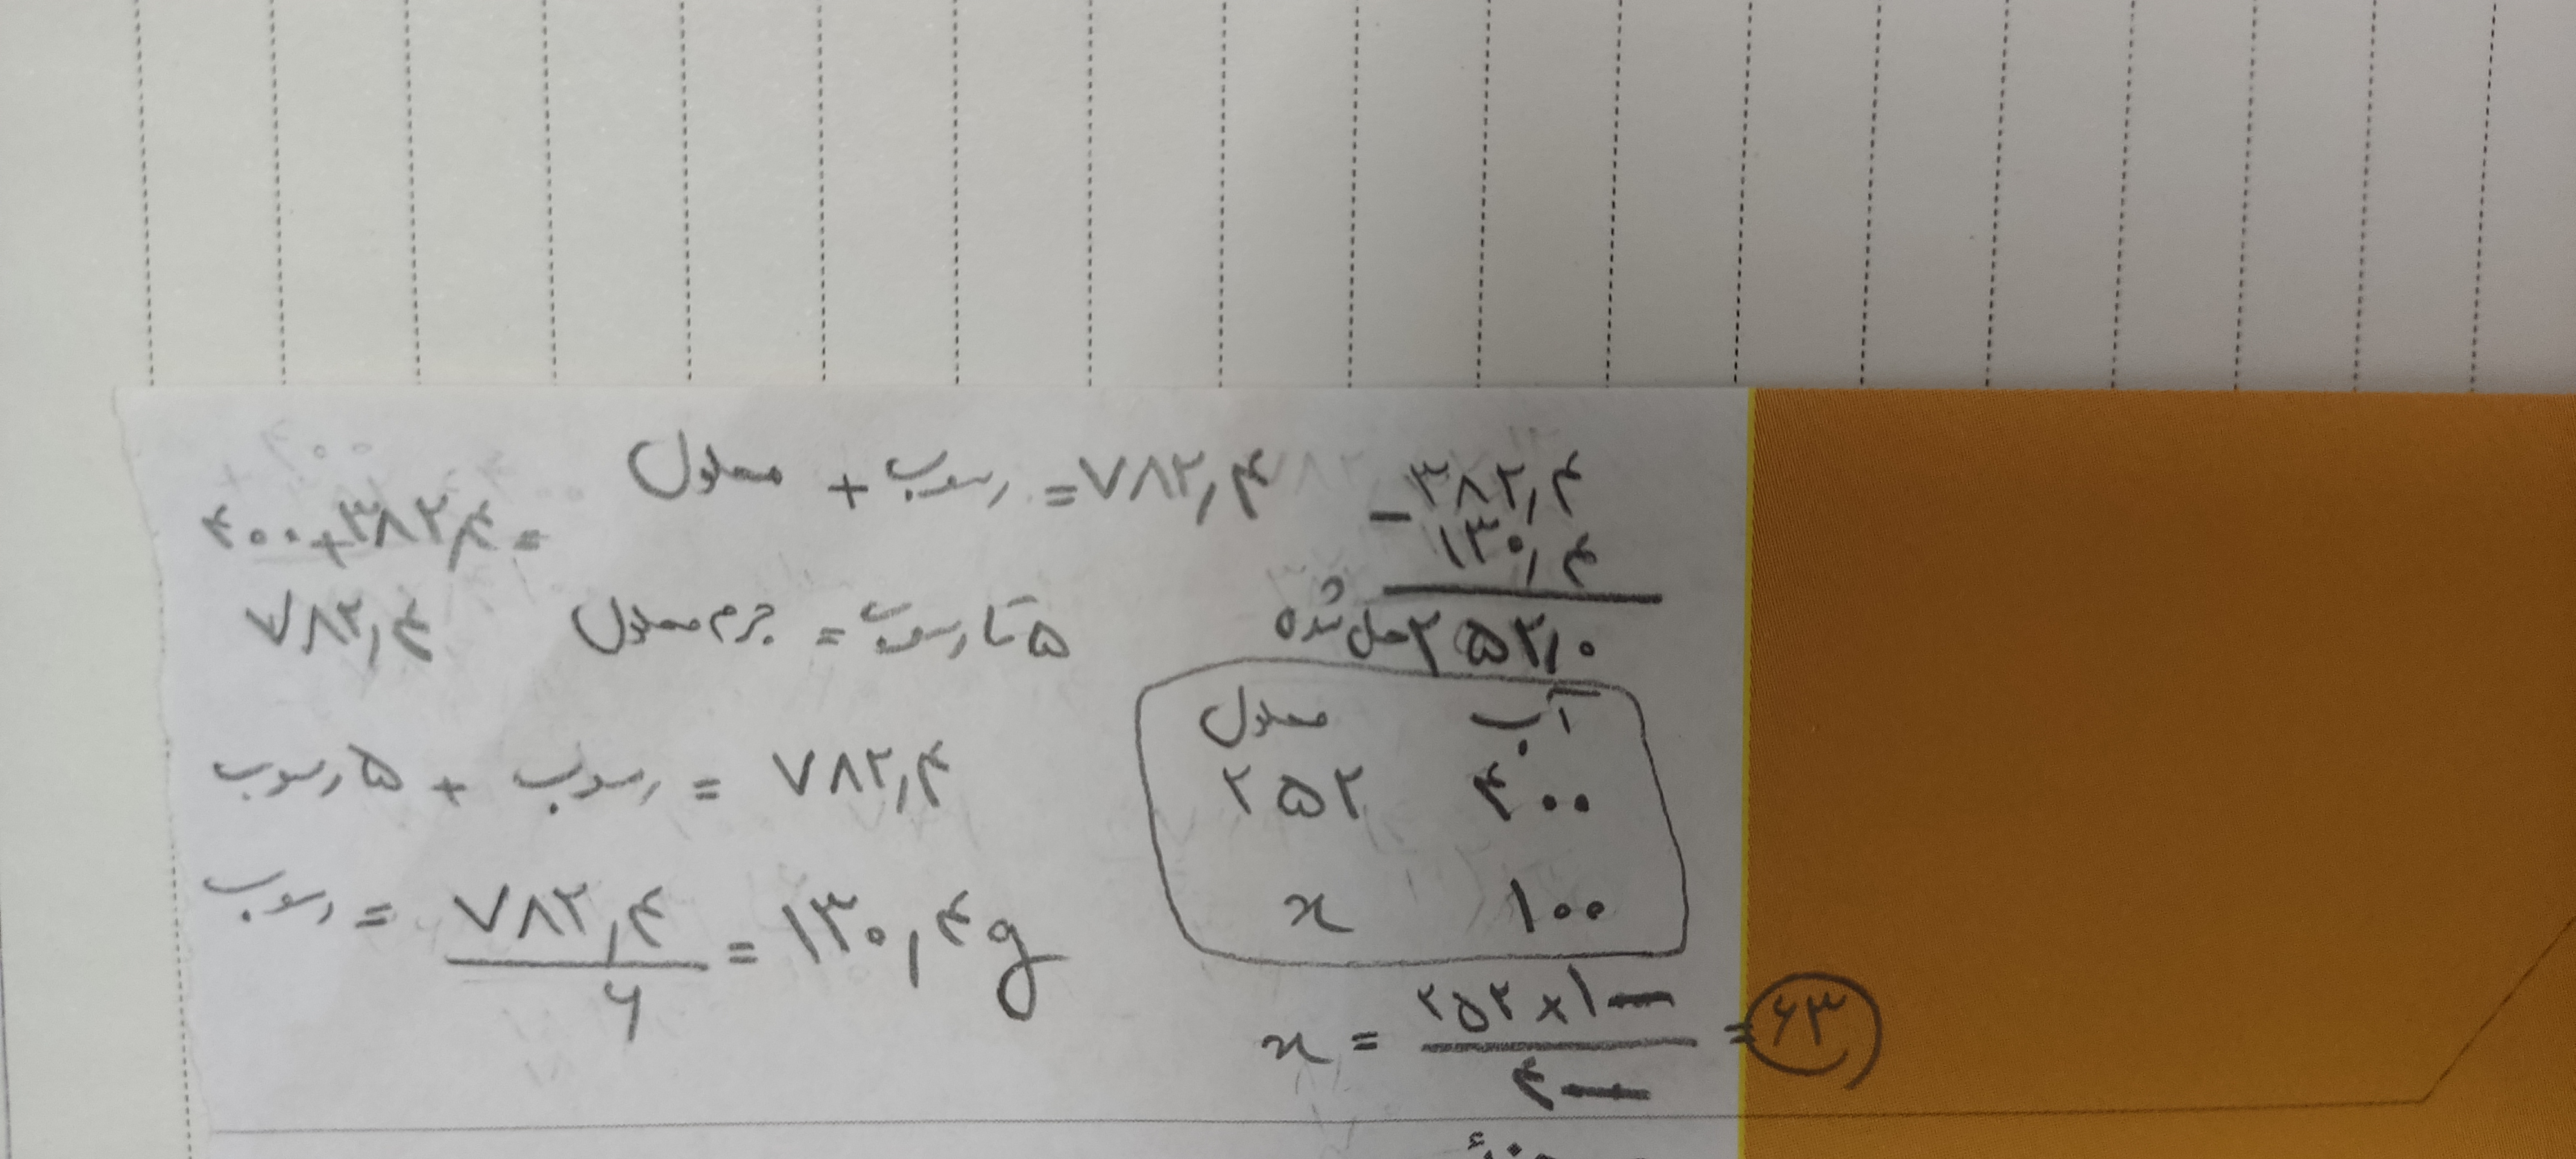 محلول + رسوب = ۷۸۲,۴
۴۰۰+۳۸۲,۴=
۷۸۲,۴
جرم محلول = ۵ تا رسوب
۵ رسوب + رسوب = ۷۸۲,۴
رسوب = ۷۸۲,۴ / ۶ = ۱۳۰,۴ g
۳۸۲,۴
− ۱۳۰,۴
۲۵۲,۰ حل شده
محلول آب
۲۵۲ ۴۰۰
x ۱۰۰
x = ۲۵۲×۱۰۰ / ۴۰۰ = ۶۳